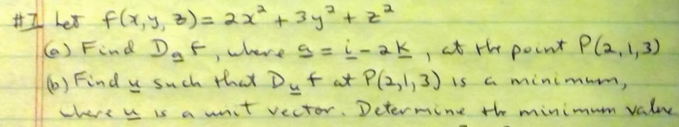 #7 Let f(x,y,z) = 2x² + 3y² + z²
(a) Find D_a f, where a = i - 2k, at the point P(2,1,3)
(b) Find u such that D_u f at P(2,1,3) is a minimum,
where u is a unit vector. Determine the minimum value